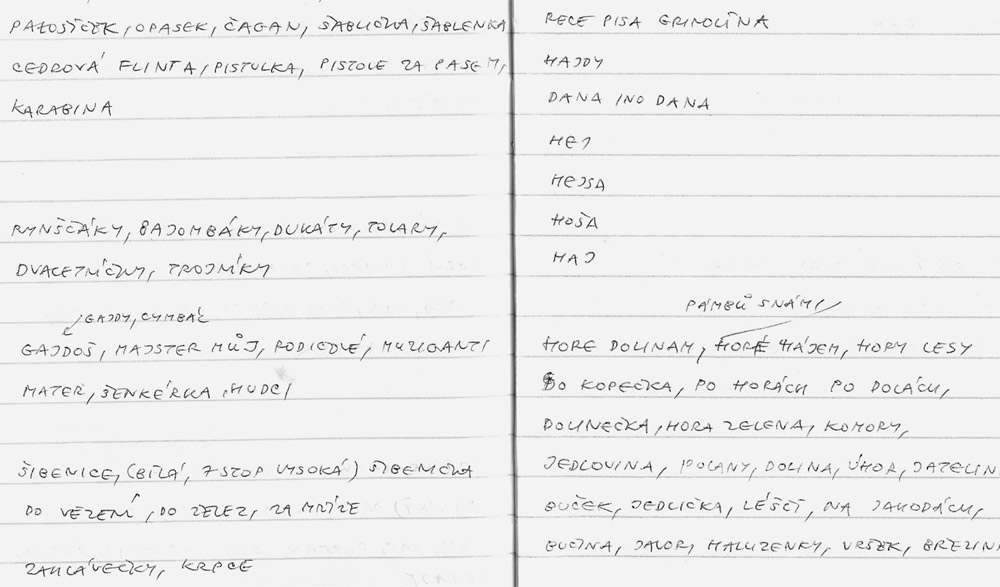 PALOŠÍČEK, OPASEK, ČAGAN, ŠABLIČKA, ŠABLENKA
CEDROVÁ FLINTA, PISTULKA, PISTOLE ZA PASEM,
KARABINA
RYNŠČÁKY, BAJOMBÁKY, DUKÁTY, TOLARY,
DVACETNÍČKY, TROJNÍKY
GAJDY, CYMBÁL
GAJDOŠ, MAJSTER MŮJ, PODIEDLÉ, MUZIGANTI
MATER, ŠENKÉRKA, HUDCI
ŠIBENICE, (BÍLÁ, 7 STOP VYSOKÁ) ŠIBENIČKA
DO VĚZENÍ, DO ŽELEZ, ZA MŘÍŽE
ZAHLÁVEČKY, KRPCE
RECE PISA GRIMOLINA
HAJDY
DANA INO DANA
HEJ
HEJSA
HOŠA
HAJ
PÁMBŮ S NÁMI
HORE DOLINAM, HORÉ HÁJEM, HORY LESY
DO KOPEČKA, PO HORÁCH PO DOLÁCH,
DOLINEČKA, HORA ZELENA, KOMORY,
JEDLOVINA, POLANY, DOLINA, ÚHOR, JATELIN
BUČEK, JEDLIČKA, LÉŠČÍ, NA JAHODÁCH,
BUČINA, JAVOR, HALUZENKY, VRŠEK, BŘEZINA